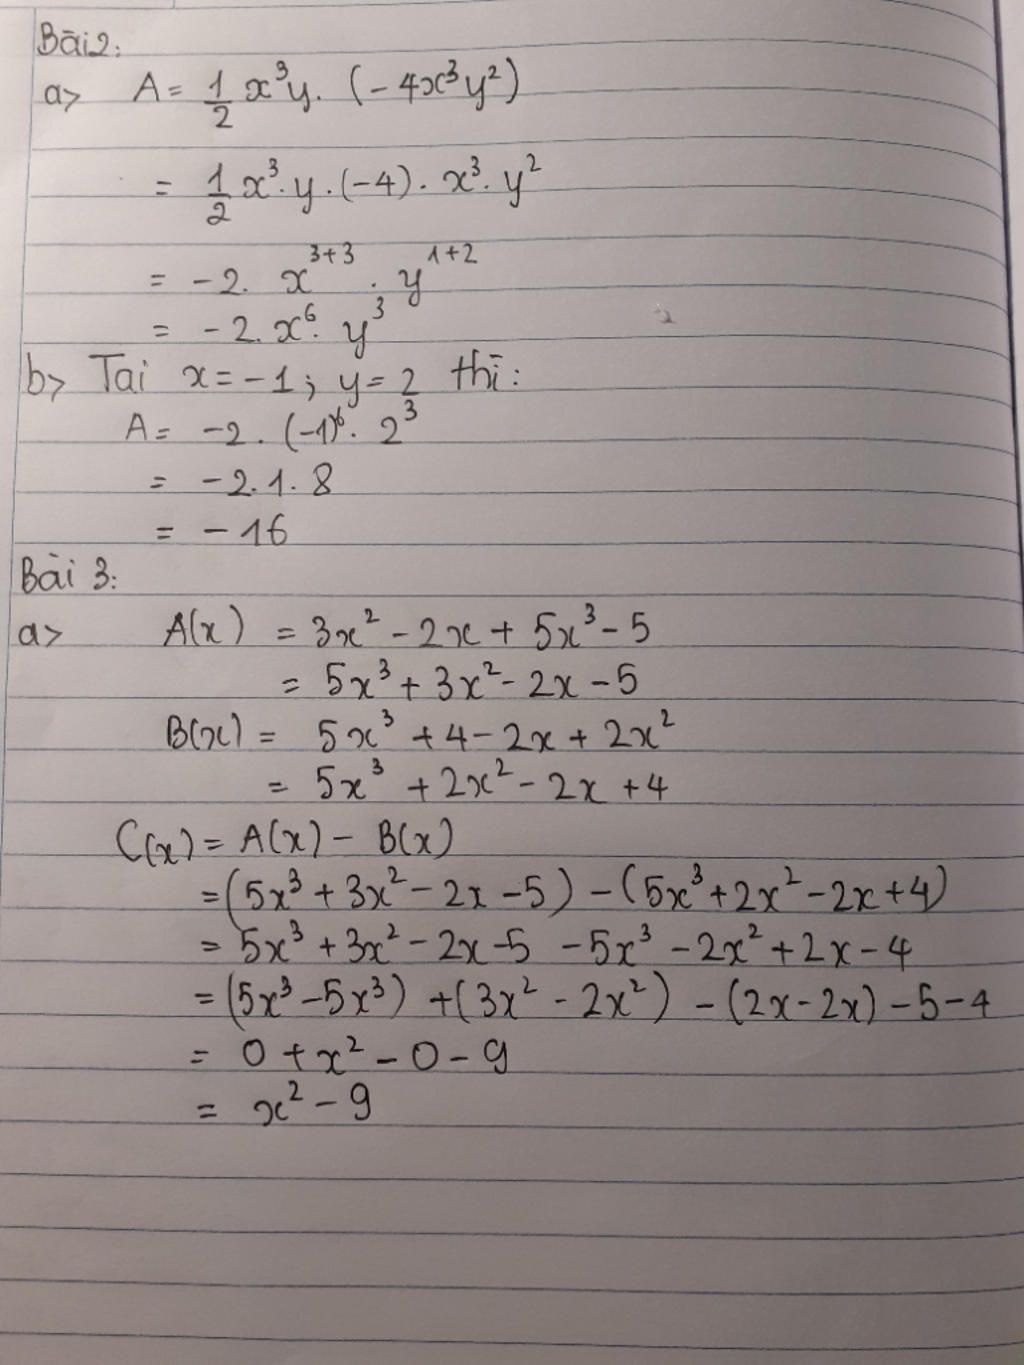 Bài 2:
a> A = 1/2 x³y. (-4x³y²)
= 1/2 x³. y. (-4). x³. y²
= -2. x³⁺³ . y¹⁺²
= -2. x⁶. y³
b> Tại x = -1; y = 2 thì:
A = -2. (-1)⁶. 2³
= -2. 1. 8
= -16
Bài 3:
a> A(x) = 3x² - 2x + 5x³ - 5
= 5x³ + 3x² - 2x - 5
B(x) = 5x³ + 4 - 2x + 2x²
= 5x³ + 2x² - 2x + 4
C(x) = A(x) - B(x)
= (5x³ + 3x² - 2x - 5) - (5x³ + 2x² - 2x + 4)
= 5x³ + 3x² - 2x - 5 - 5x³ - 2x² + 2x - 4
= (5x³ - 5x³) + (3x² - 2x²) - (2x - 2x) - 5 - 4
= 0 + x² - 0 - 9
= x² - 9